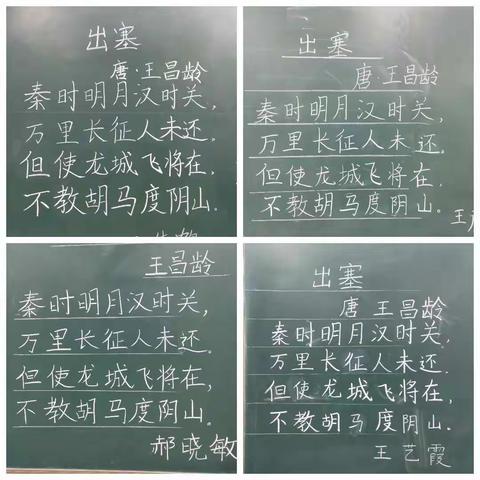 出塞
唐·王昌龄
秦时明月汉时关，
万里长征人未还。
但使龙城飞将在，
不教胡马度阴山。
出塞
唐·王昌龄
秦时明月汉时关，
万里长征人未还.
但使龙城飞将在.
不教胡马度阴山.
王
王昌龄
秦时明月汉时关，
万里长征人未还。
但使龙城飞将在，
不教胡马度阴山.
郝晓敏
出塞
唐 王昌龄
秦时明月汉时关，
万里长征人未还.
但使龙城飞将在，
不教胡马度阴山.
王艺霞